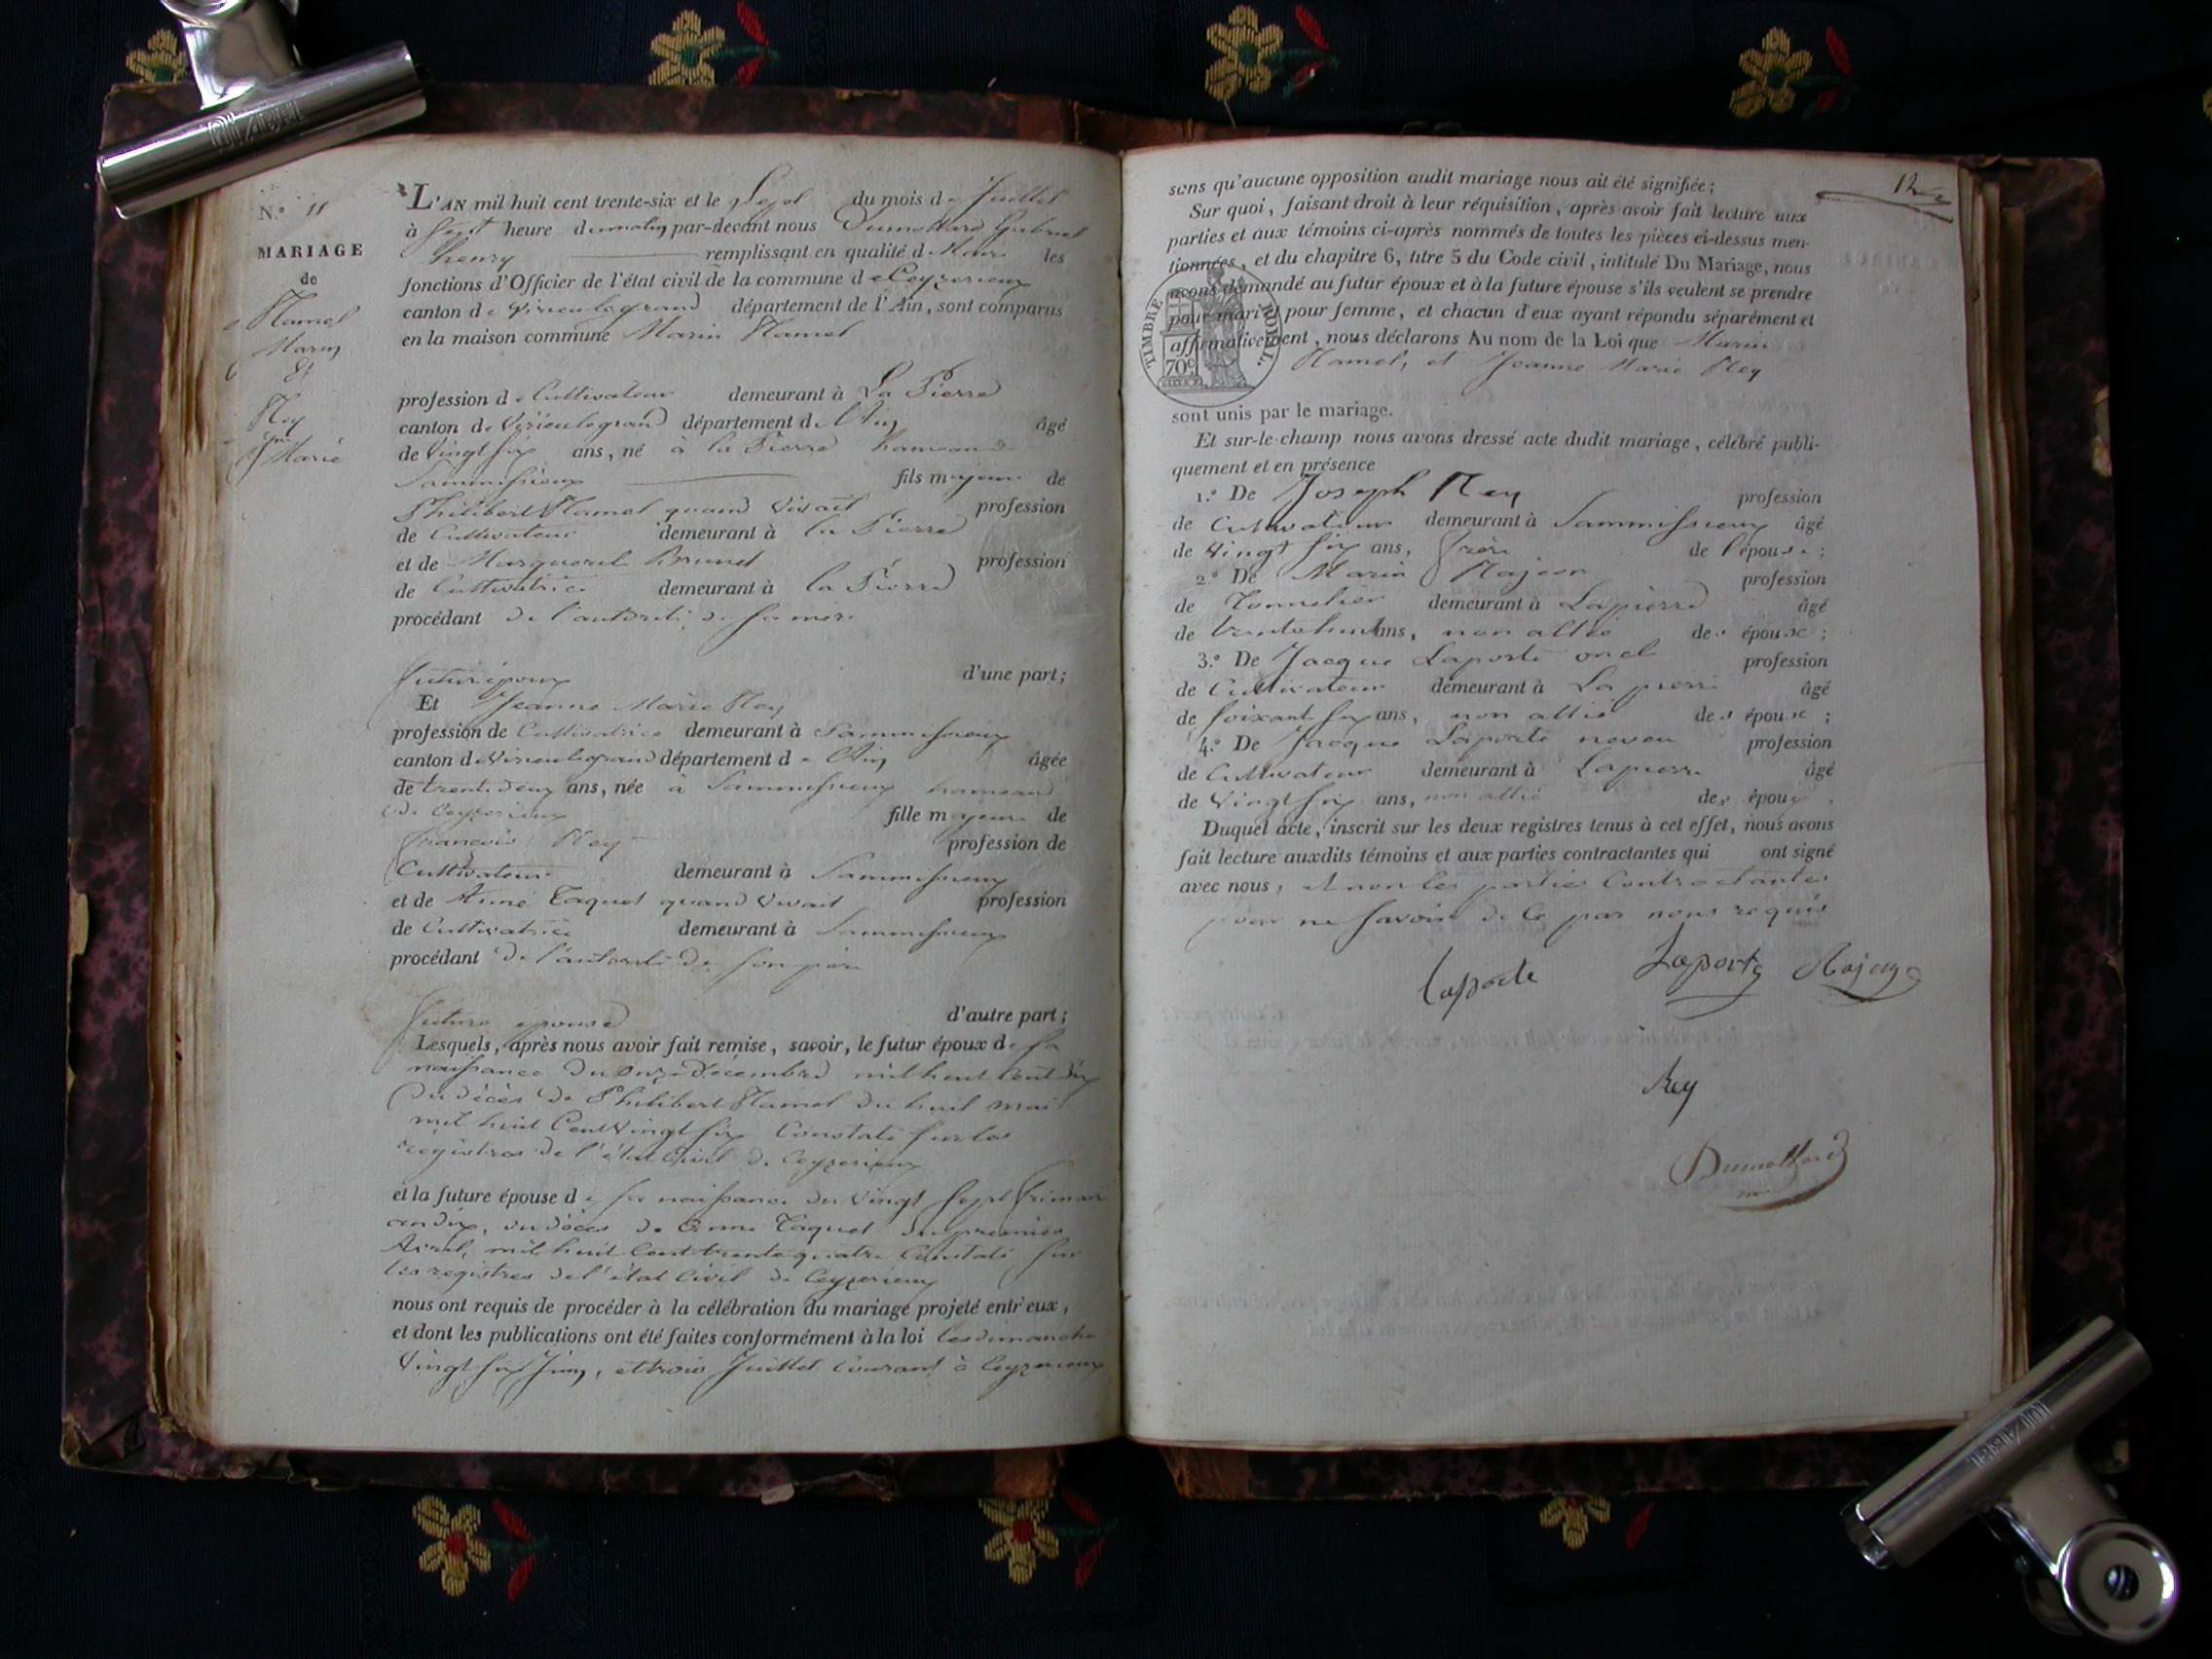 N.º 11
MARIAGE
de
Hamel
Marin
Et
Rey
Jne
Marie
L'AN mil huit cent trente-six et le Sept du mois de Juillet
à Sept heure du matin par-devant nous Dumollard Gabriel
henry remplissant en qualité de Maire les
fonctions d'Officier de l'état civil de la commune de Ceyzerieux
canton de Virieu le grand département de l'Ain, sont comparus
en la maison commune Marin Hamel
profession de Cultivateur demeurant à La Pierre
canton de Virieu le grand département de l'Ain âgé
de Vingt six ans, né à la Pierre hameau
fils majeur de
Philibert Hamel quand Vivait profession
de Cultivateur demeurant à la Pierre
et de Marguerite Brunet profession
de Cultivatrice demeurant à la Pierre
procédant de l'autorité de sa mère
futur époux d'une part;
Et Jeanne Marie Rey
profession de Cultivatrice demeurant à Sammissieux
canton de Virieu le grand département de l'Ain âgée
de trente deux ans, née à Sammissieux hameau
de Ceyzerieux fille majeure de
françois Rey profession de
Cultivateur demeurant à Sammissieux
et de Anne Taquet quand Vivait profession
de Cultivatrice demeurant à Sammissieux
procédant de l'autorité de son père
future épouse d'autre part;
Lesquels, après nous avoir fait remise, savoir, le futur époux de sa
naissance du onze Décembre mil huit Cent dix
du décès de Philibert Hamel du huit mai
mil huit Cent Vingt six Constaté sur les
registres de l'état Civil de Ceyzerieux
et la future épouse de sa naissance du Vingt Sept frimaire
an dix, du décès de Anne Taquet du premier
Avril, mil huit Cent trente quatre Constaté sur
les registres de l'état Civil de Ceyzerieux
nous ont requis de procéder à la célébration du mariage projeté entr'eux,
et dont les publications ont été faites conformément à la loi les dimanche
Vingt six Juin, et trois Juillet Courant à Ceyzerieux
12
sans qu'aucune opposition audit mariage nous ait été signifiée;
Sur quoi, faisant droit à leur réquisition, après avoir fait lecture aux
parties et aux témoins ci-après nommés de toutes les pièces ci-dessus men-
tionnées, et du chapitre 6, titre 5 du Code civil, intitulé Du Mariage, nous
avons demandé au futur époux et à la future épouse s'ils veulent se prendre
pour mari et pour femme, et chacun d'eux ayant répondu séparément et
affirmativement, nous déclarons Au nom de la Loi que Marin
Hamel, et Jeanne Marie Rey
TIMBRE ROYAL.
70c
sont unis par le mariage.
Et sur-le-champ nous avons dressé acte dudit mariage, célébré publi-
quement et en présence
1.º De Joseph Rey profession
de Cultivateur demeurant à Sammissieux âgé
de Vingt six ans, frère de l'épouse;
2.º De Marin profession
de Tonnelier demeurant à Lapierre âgé
de trente huit ans, non allié des épouse;
3.º De Jacque Laporte oncle profession
de Cultivateur demeurant à Lapierre âgé
de soixante six ans, non allié des épouse;
4.º De Jacque Laporte neveu profession
de Cultivateur demeurant à Lapierre âgé
de Vingt six ans, non allié des époux.
Duquel acte, inscrit sur les deux registres tenus à cet effet, nous avons
fait lecture auxdits témoins et aux parties contractantes qui ont signé
avec nous, et non les parties Contractantes
pour ne savoir de Ce par nous requis
Laporte Laporte
Rey
Dumollard